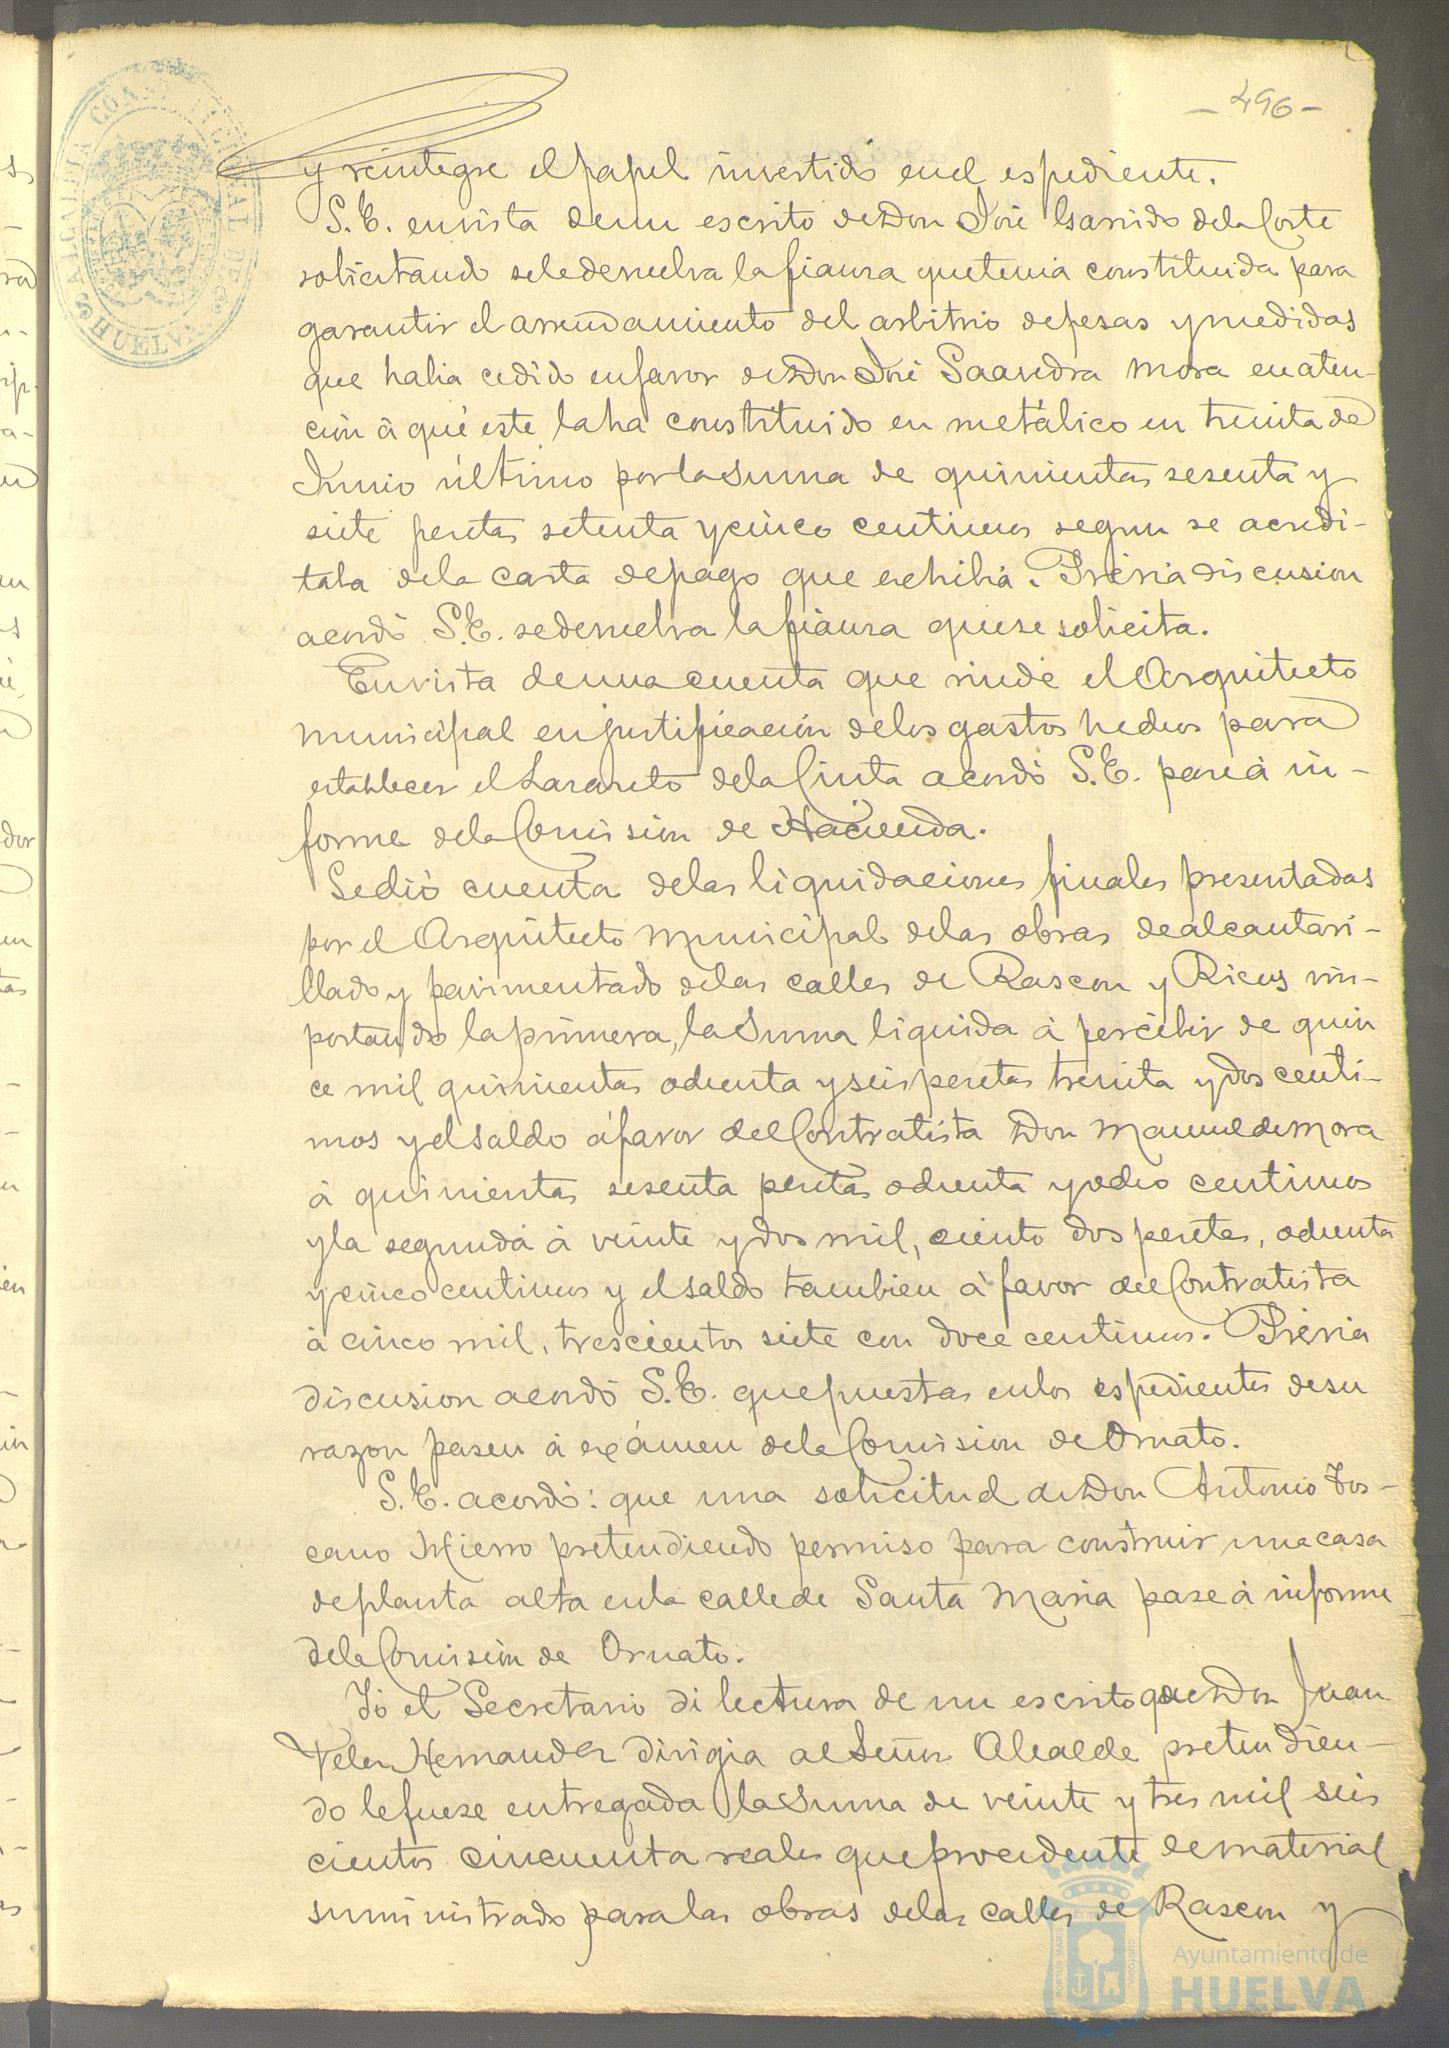 - 496 -
ALCALDIA CONSTITUCIONAL DE HUELVA
y reintegre el papel invertido en el espediente.
S.E. en vista de un escrito de Don José Garrido de la Corte
solicitando se le devuelva la fianza que tenia constituida para
garantir el arrendamiento del arbitrio de pesas y medidas
que habia cedido en favor de Don José Saavedra Mora en aten-
ción à qué este la ha constituido en metálico en treinta de
Junio último por la suma de quinientas sesenta y
siete pesetas setenta y cinco centimos segun se acredi-
taba de la carta de pago que exhibia. Prévia discusion
acordó S.E. se devuelva la fianza que se solicita.
En vista de una cuenta que rinde el Arquitecto
municipal en justificación de los gastos hechos para
establecer el Lazareto de la Cinta acordó S.E. pase à in-
forme de la Comision de Hacienda.
Se dió cuenta de las liquidaciones finales presentadas
por el Arquitecto Municipal de las obras de alcantari-
llado y pavimentado de las calles de Rascon y Ricos im-
portando la primera, la suma liquida à percibir de quin
ce mil quinientas ochenta y seis pesetas treinta y dos centi-
mos y el saldo á favor del Contratista Don Manuel de Mora
à quinientas sesenta pesetas ochenta y ocho centimos
y la segunda à veinte y dos mil, ciento dos pesetas, ochenta
y cinco centimos y el saldo tambien à favor del Contratista
à cinco mil, trescientos siete con doce centimos. Prévia
discusion acordó S.E. que puestas en los espedientes de su
razon pasen à exámen de la Comision de Ornato.
S.E. acordó: que una solicitud de Don Antonio Tos-
cano Hierro pretendiendo permiso para construir una casa
de planta alta en la calle de Santa Maria pase à informe
de la Comisión de Ornato.
Yó el Secretario di lectura de un escrito que Don Juan
Velez Hernandez dirigia al Señor Alcalde pretendien-
do le fuese entregada la suma de veinte y tres mil seis
cientos cincuenta reales que procedente de material
suministrado para las obras de las calles de Rascon y
Ayuntamiento de
HUELVA